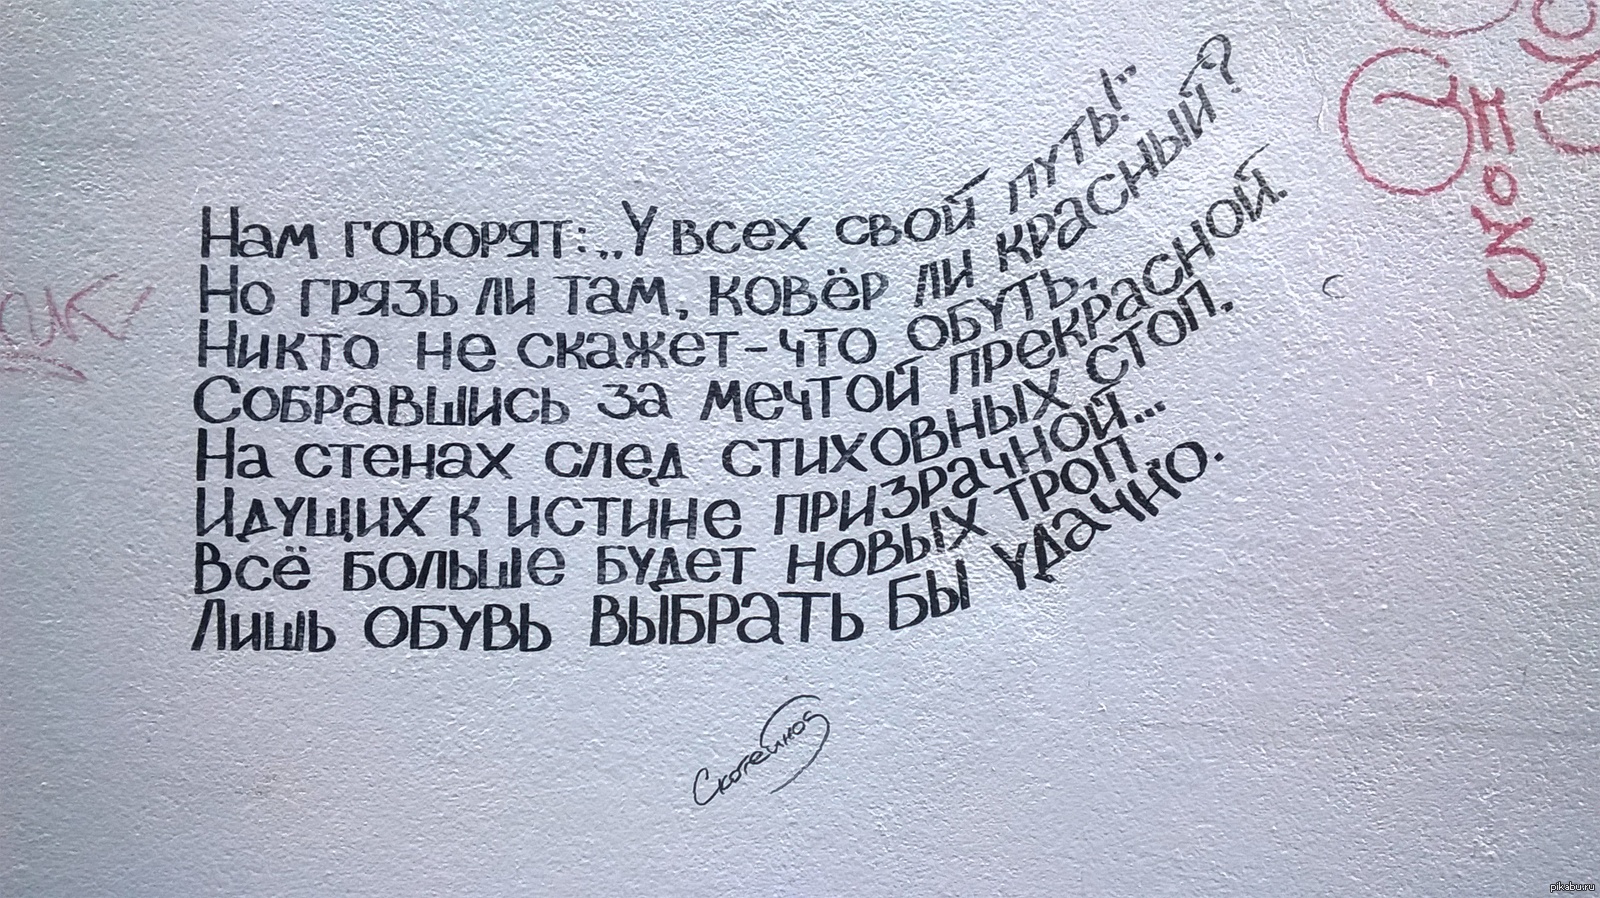 Нам говорят: „У всех свой путь!“
Но грязь ли там, ковёр ли красный?
Никто не скажет-что обуть,
Собравшись за мечтой прекрасной.
На стенах след стиховных стоп.
Идущих к истине призрачной...
Всё больше будет новых троп
Лишь обувь выбрать бы удачно.
pikabu.ru